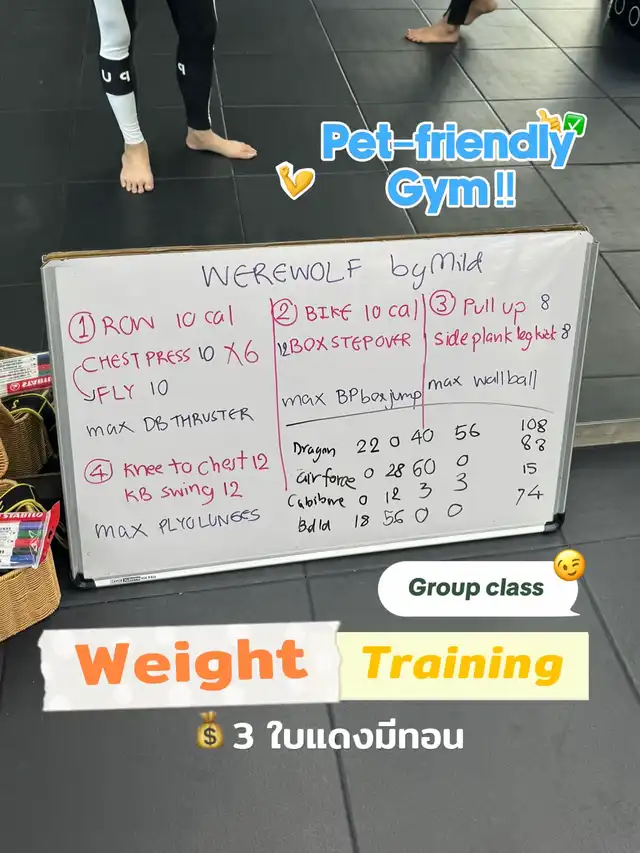 UP
P
Pet-friendly
Gym!!
WEREWOLF by Mild
① ROW 10 cal
CHEST PRESS 10 X6
FLY 10
max DB THRUSTER
④ Knee to Chest 12
KB swing 12
max PLYOLUNGES
② BIKE 10 cal
12 BOX STEP OVER
max BP box jump
③ Pull up 8
side plank leg kick 8
max wall ball
Dragon 22 0 40 56 108
air force 0 28 60 0 88
0 12 3 3 15
18 56 0 0 74
STABILO
STABILO
Group class
Weight Training
3 ใบแดงมีทอน